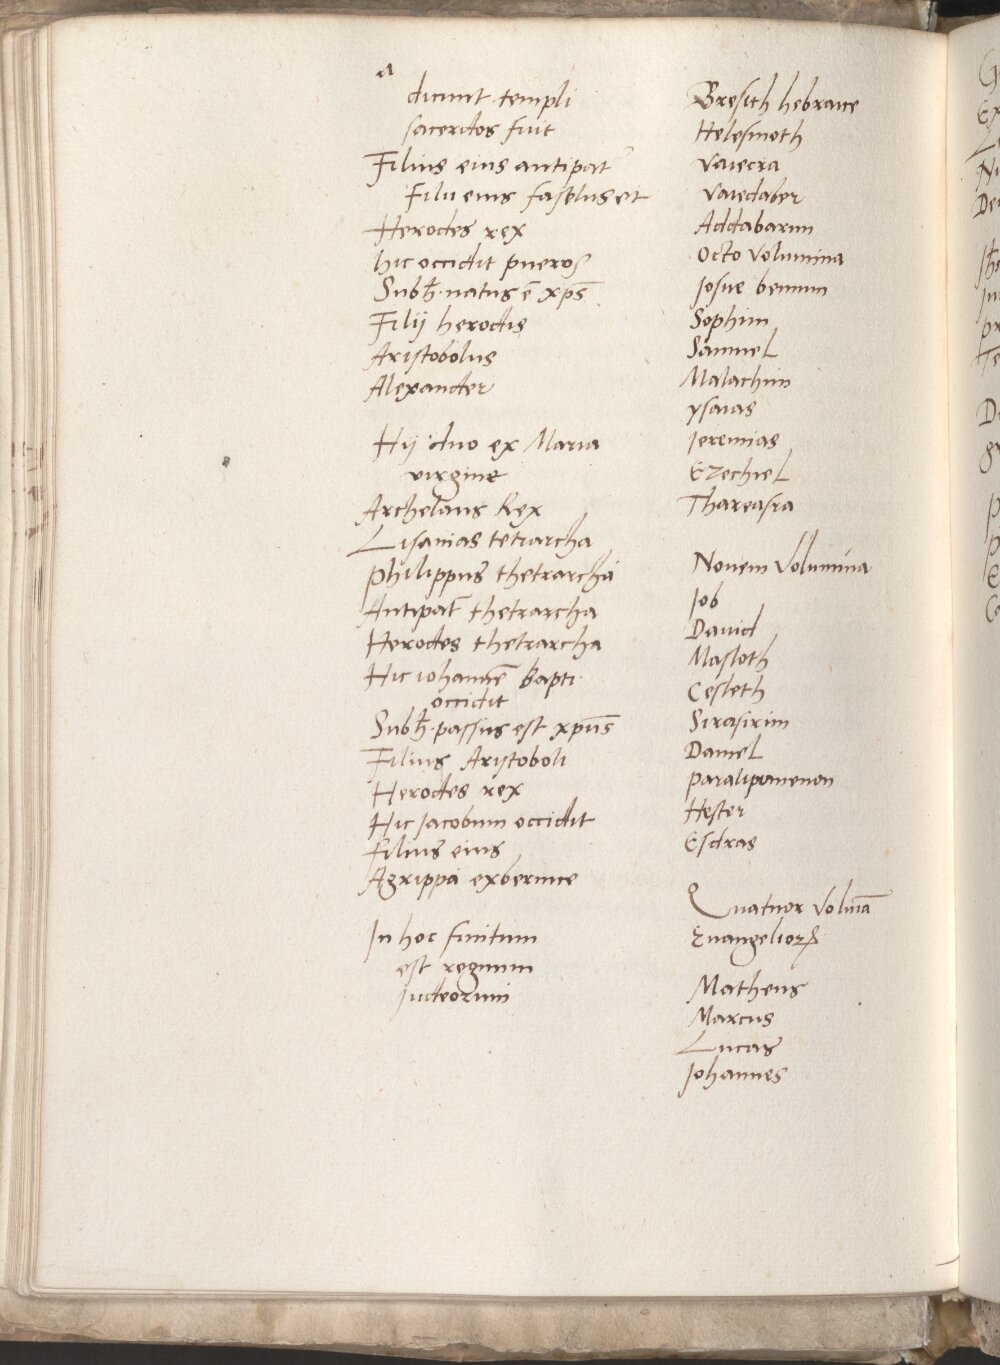 a
dicunt templi
sacerdos fuit
Filius eius antipat᷑
Filii eius faselus et
Herodes rex
hic occidit pueroꝝ
Sub h̄ natus ē xp̄s
Filij herodis
Aristobolus
Alexander
Hij duo ex Maria
virgine
Archelaus Rex
Lisanias tetrarcha
philippus thetrarcha
Antipat᷑ thetrarcha
Herodes thetrarcha
Hic iohannē bapti
occidit
Sub h̄ passus est xp̄us
Filius Aristoboli
Herodes rex
Hic Jacobum occidit
filius eius
Agrippa exbernice
In hoc finitum
est regnum
iudeorum
Bresith hebraice
Helesmoth
vaiecra
vaiedaber
Addabarim
Octo volumina
Josue bennun
Sophim
Samuel
Malachim
ysaias
Jeremias
Ezechiel
Thareasra
Nouem Volumina
Job
Dauid
Masloth
Cesleth
Sirasirim
Daniel
paralipomenon
Hester
Esdras
Quatuor Volum̄a
Euangelioꝝ
Matheus
Marcus
Lucas
Johannes